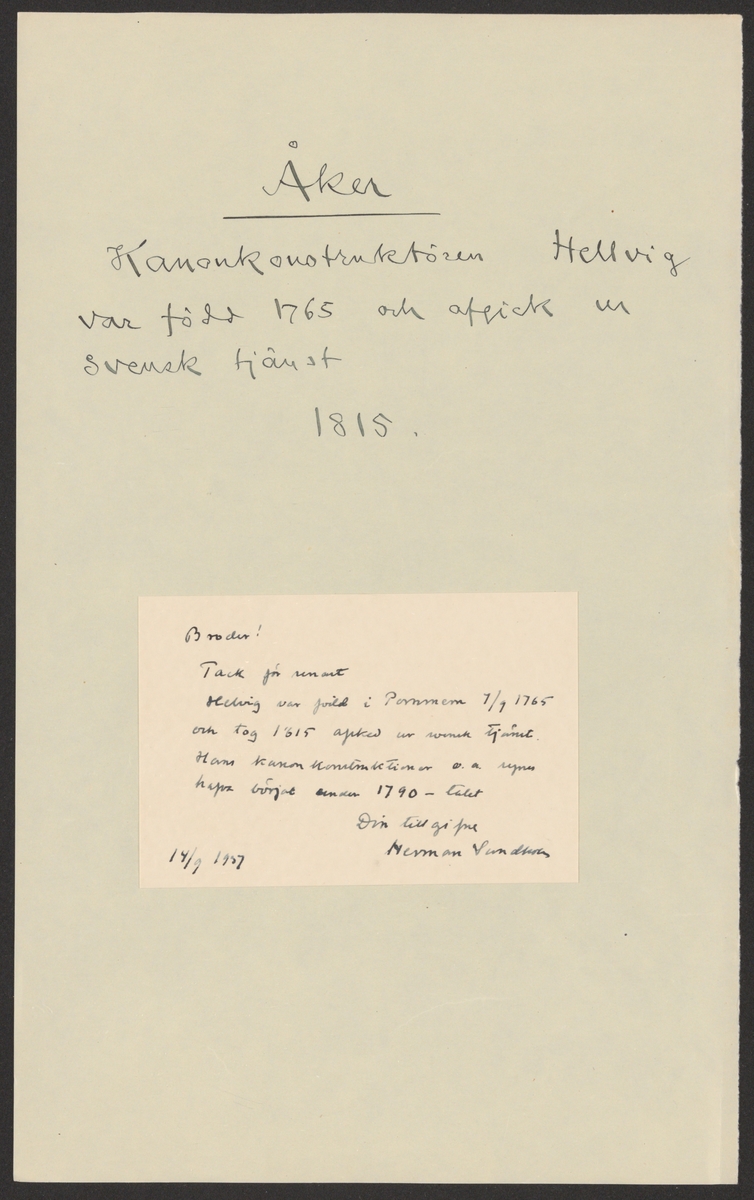 Åker
Kanonkonstruktören Hellvig
var född 1765 och afgick ur
svensk tjänst
1815.
Broder!
Tack för senast
Helvig var född i Pommern 7/9 1765
och tog 1815 afsked ur svensk tjänst.
Hans kanonkonstruktioner o. a. synes
hafva börjat under 1790-talet
Din tillgifne
Herman
14/9 1937